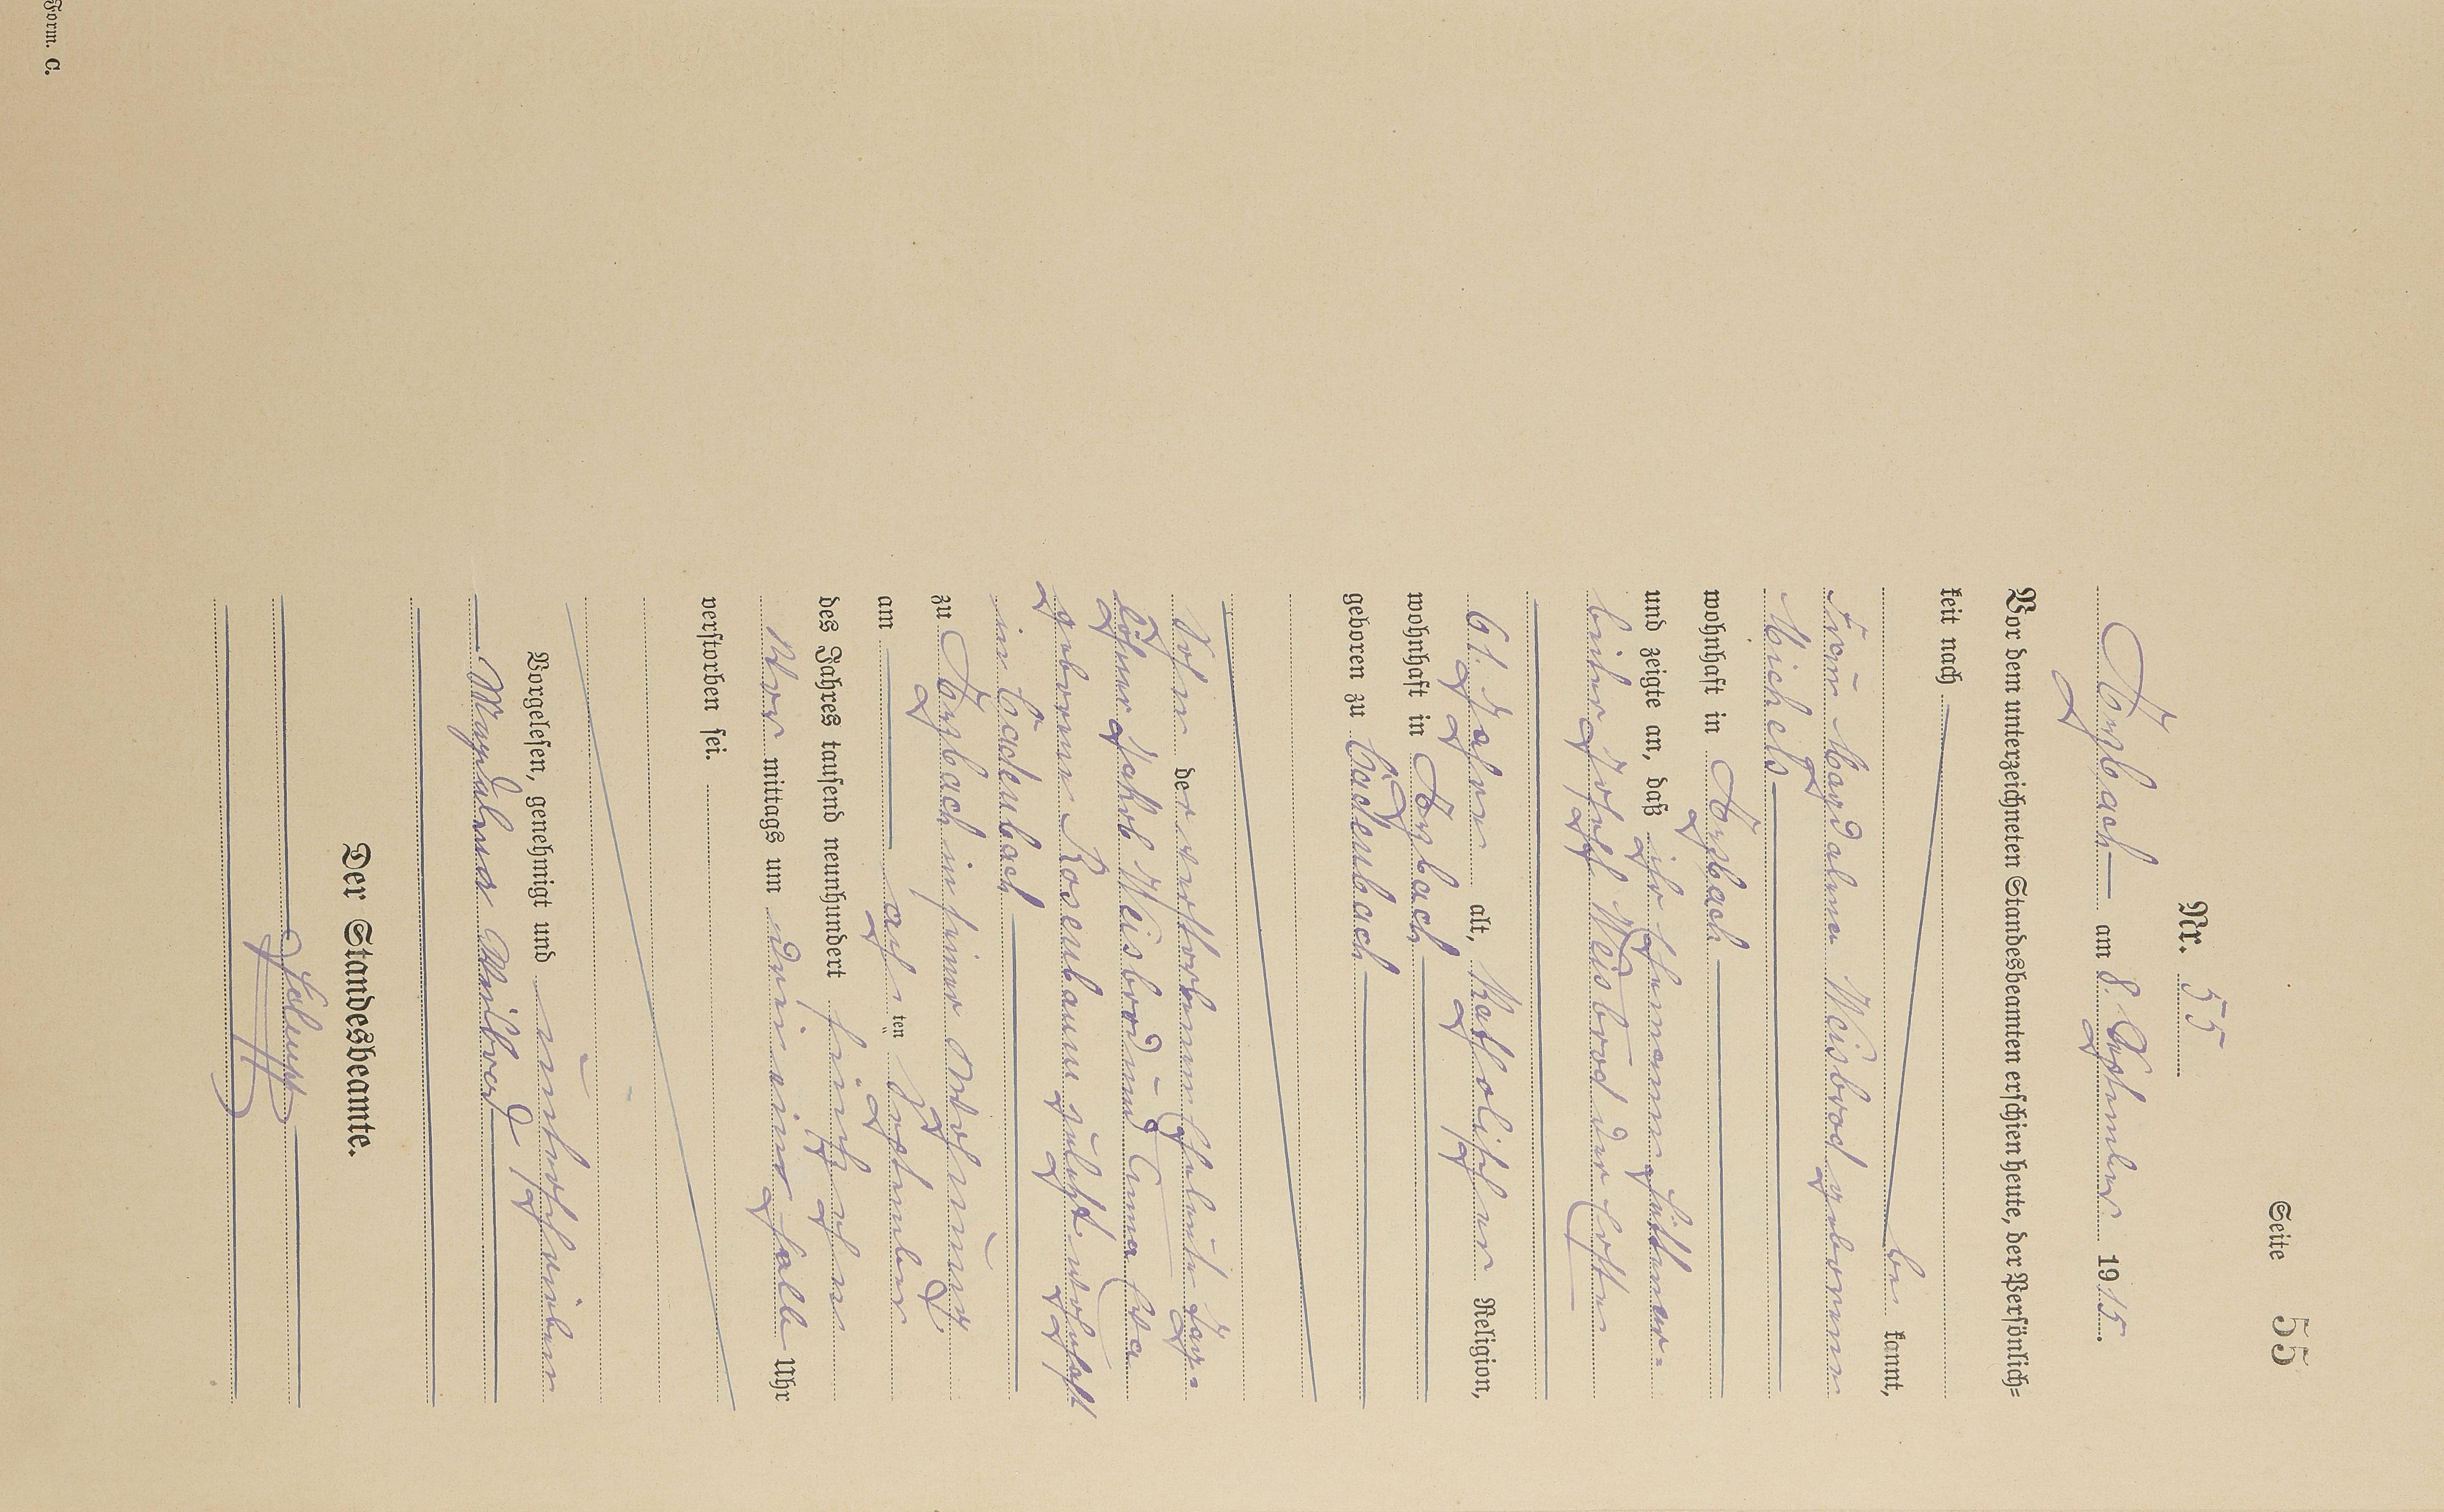 Seite 55
Nr. 55
Arzbach am 8. September 1915.
Vor dem unterzeichneten Standesbeamten erschien heute, der Persönlich-
keit nach
be kannt,
Frau Magdalena Weisbrod geborene
Michels
wohnhaft in Arzbach
und zeigte an, daß ihr Ehemann, Hüttenar-
beiter Joseph Weisbrod der Erste
61 Jahre alt, Katholischer Religion,
wohnhaft in Arzbach
geboren zu Cadenbach
Sohn der verstorbenen Eheleute Tag-
löhner Jakob Weisbrod und Anna Eva
geborene Rosenbaum zuletzt wohnhaft
in Cadenbach
zu Arzbach in seiner Wohnung
am achten September
des Jahres tausend neunhundert fünfzehn
Vor mittags um drei einhalb Uhr
verstorben sei.
Vorgelesen, genehmigt und unterschrieben
Magdalena Weisbrod
Der Standesbeamte.
Form. C.